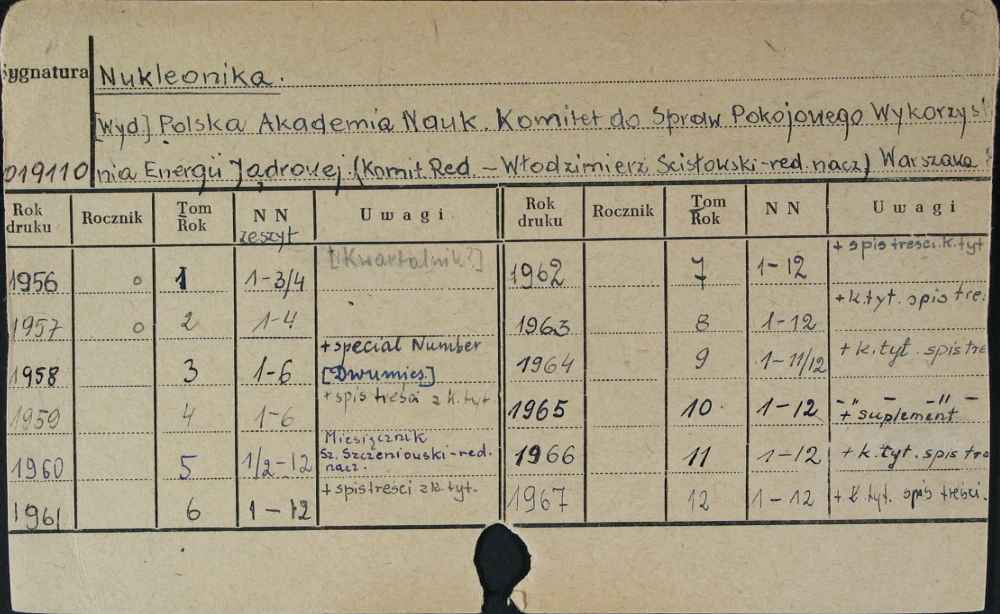 ygnatura Nukleonika.
[Wyd.] Polska Akademia Nauk. Komitet do Spraw Pokojowego Wykorzys
019110 nia Energii Jądrowej. (Komit. Red. – Włodzimierz Ścisłowski-red. nacz) Warszawa
Rok druku Rocznik Tom Rok N N zeszyt Uwagi Rok druku Rocznik Tom Rok N N Uwagi
1956 o 1 1-3/4 [Kwartalnik?] 1962 7 1-12 + spis treści. k. tyt
1957 o 2 1-4 1963 8 1-12 + k. tyt. spis tre.
1958 3 1-6 + special Number [Dwumies.] 1964 9 1-11/12 + k. tyt. spis tre
1959 4 1-6 + spis treści z k. tyt 1965 10. 1-12 -"- -"- + suplement
1960 5 1/2-12 Miesięcznik Sz. Szczeniowski-red. nacz. 1966 11 1-12 + k. tyt. spis tre
1961 6 1-12 + spis treści z k. tyt. 1967 12 1-12 + k. tyt. spis treści.